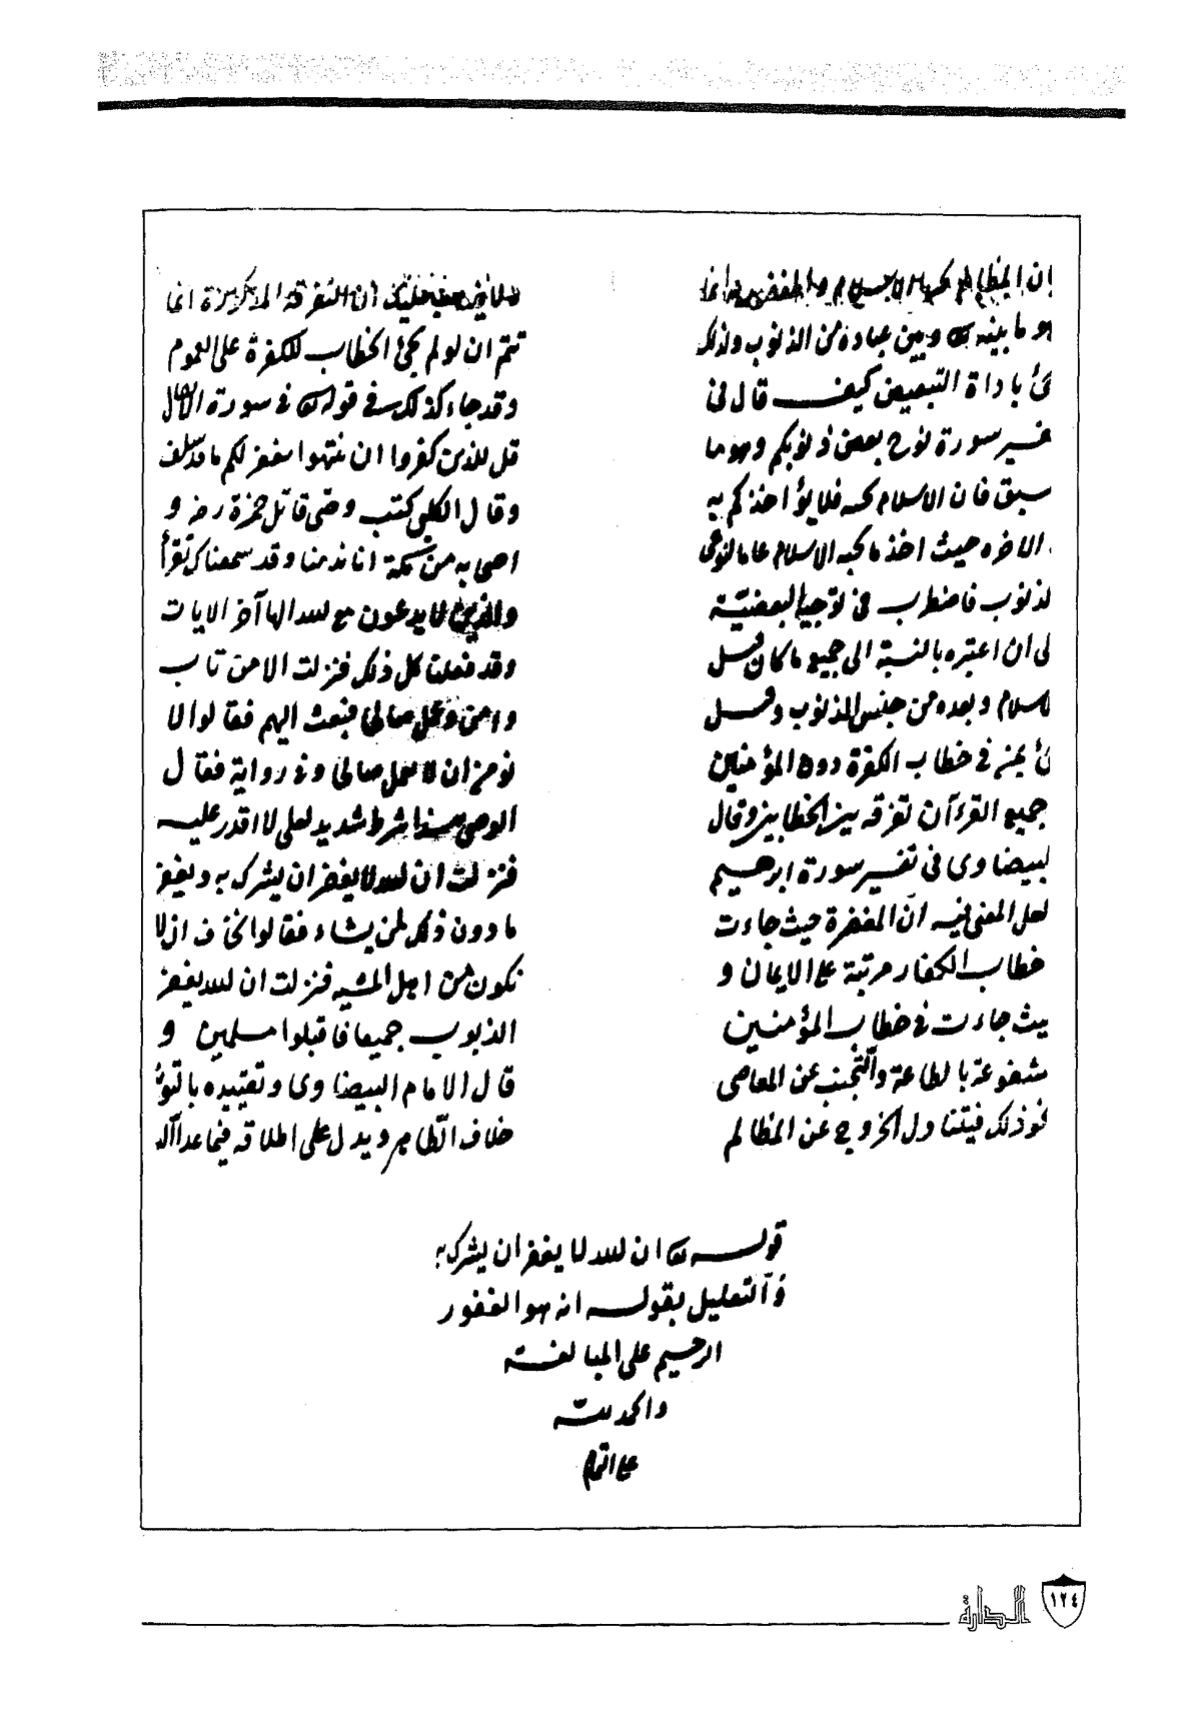 ان المظالم
هو ما بينه وبين عباده من الذنوب ولذلك
ئ باداة التبعيض كيف قال فى
فسير سورة نوح بعض ذنوبكم وهو ما
سبق فان الاسلام يجبه فلا يؤاخذكم به
الاخره حيث اخذ ما يجبه الاسلام عاما لنوعى
لذنوب فاضطرب فى توجيه البعضيّة
لى ان اعتبره بالنسبة الى جميع ما كان قبل
لاسلام وبعده من جنس الذنوب وقيل
ئ بمن فى خطاب الكفرة دون المؤمنين
جميع القرءآن تفرقه بين الخطابين وقال
لبيضاوى فى تفسير سورة ابرهيم
لعل المعنى فيه انّ المغفرة حيث جاءت
خطاب الكفار مرتبة على الايمان و
يث جاءت فى خطاب المؤمنين
مشفوعة بالطاعة والتّجنب عن المعاصى
نحو ذلك فيتناول الخروج عن المظالم
عليك ان التفرقه المذكورة انما
تتم ان لو لم يجئ الخطاب للكفرة على العموم
وقد جاء كذلك فى قوله فى سورة الانفال
قل للذين كفروا ان ينتهوا يغفر لهم ما قد سلف
وقال الكلبى كتب وحشى قاتل حمزة رضـ و
اصحابه من مكة انا ندمنا وقد سمعناك تقرأ
والذين لا يدعون مع الله الها آخر الايات
وقد فعلنا كل ذلك فنزلت الا من تاب
وامن وعمل صالحا فبعث اليهم فقالوا لا
نومن ان لا نعمل صالحا وفى رواية فقال
الوحشى هذا شرط شديد لعلى لا اقدر عليه
فنزلت ان الله لا يغفر ان يشرك به ويغفر
ما دون ذلك لمن يشاء فقالوا نخاف ان لا
نكون من اهل المشيه فنزلت ان الله يغفر
الذنوب جميعا فاقبلوا مسلمين و
قال الامام البيضاوى وتقييده بالتوبة
خلاف الظّاهر ويدل على اطلاقه فيما عدا الـ
قوله ان الله لا يغفر ان يشرك به
وَالتّعليل بقوله انه هو الغفور
الرحيم على المبالغة
والحمد للّه
على التمام
الدارة
١٢٤